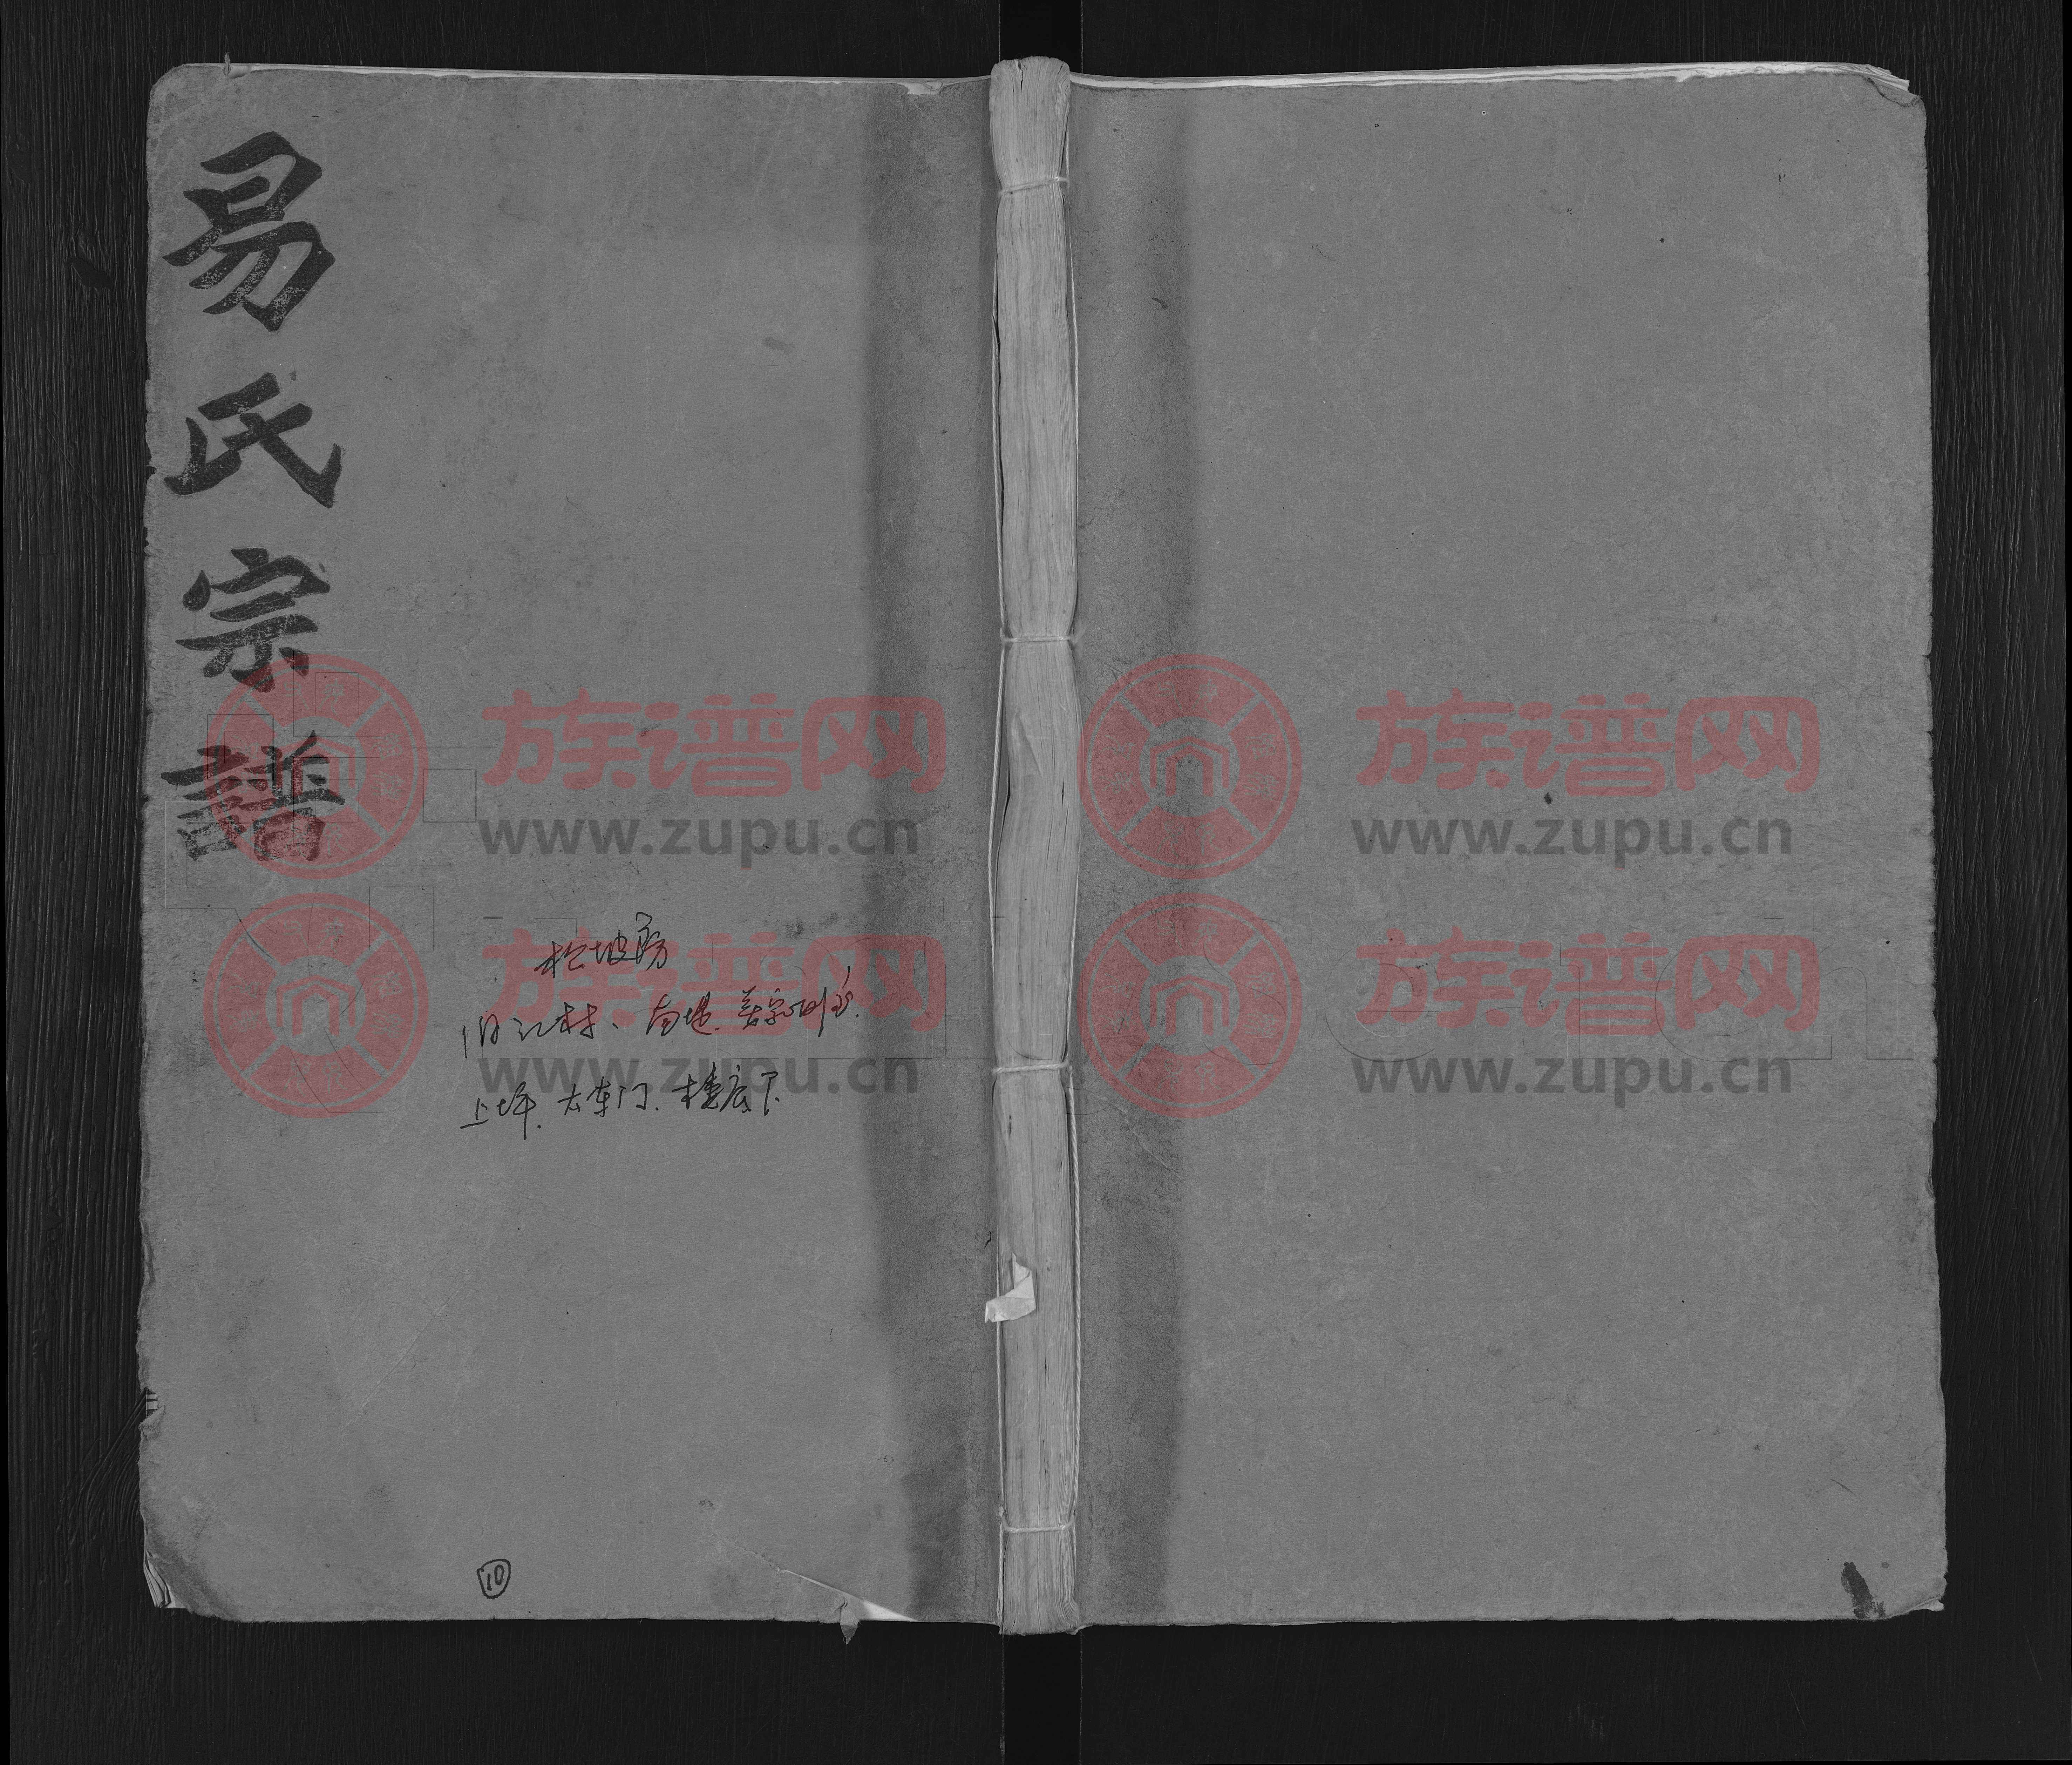 易氏宗譜
松坡房
旧江村、南堤、
上坪、大车门、楼底下
⑩
族谱网
www.zupu.cn
族谱网
www.zupu.cn
族谱网
www.zupu.cn
族谱网
www.zupu.cn